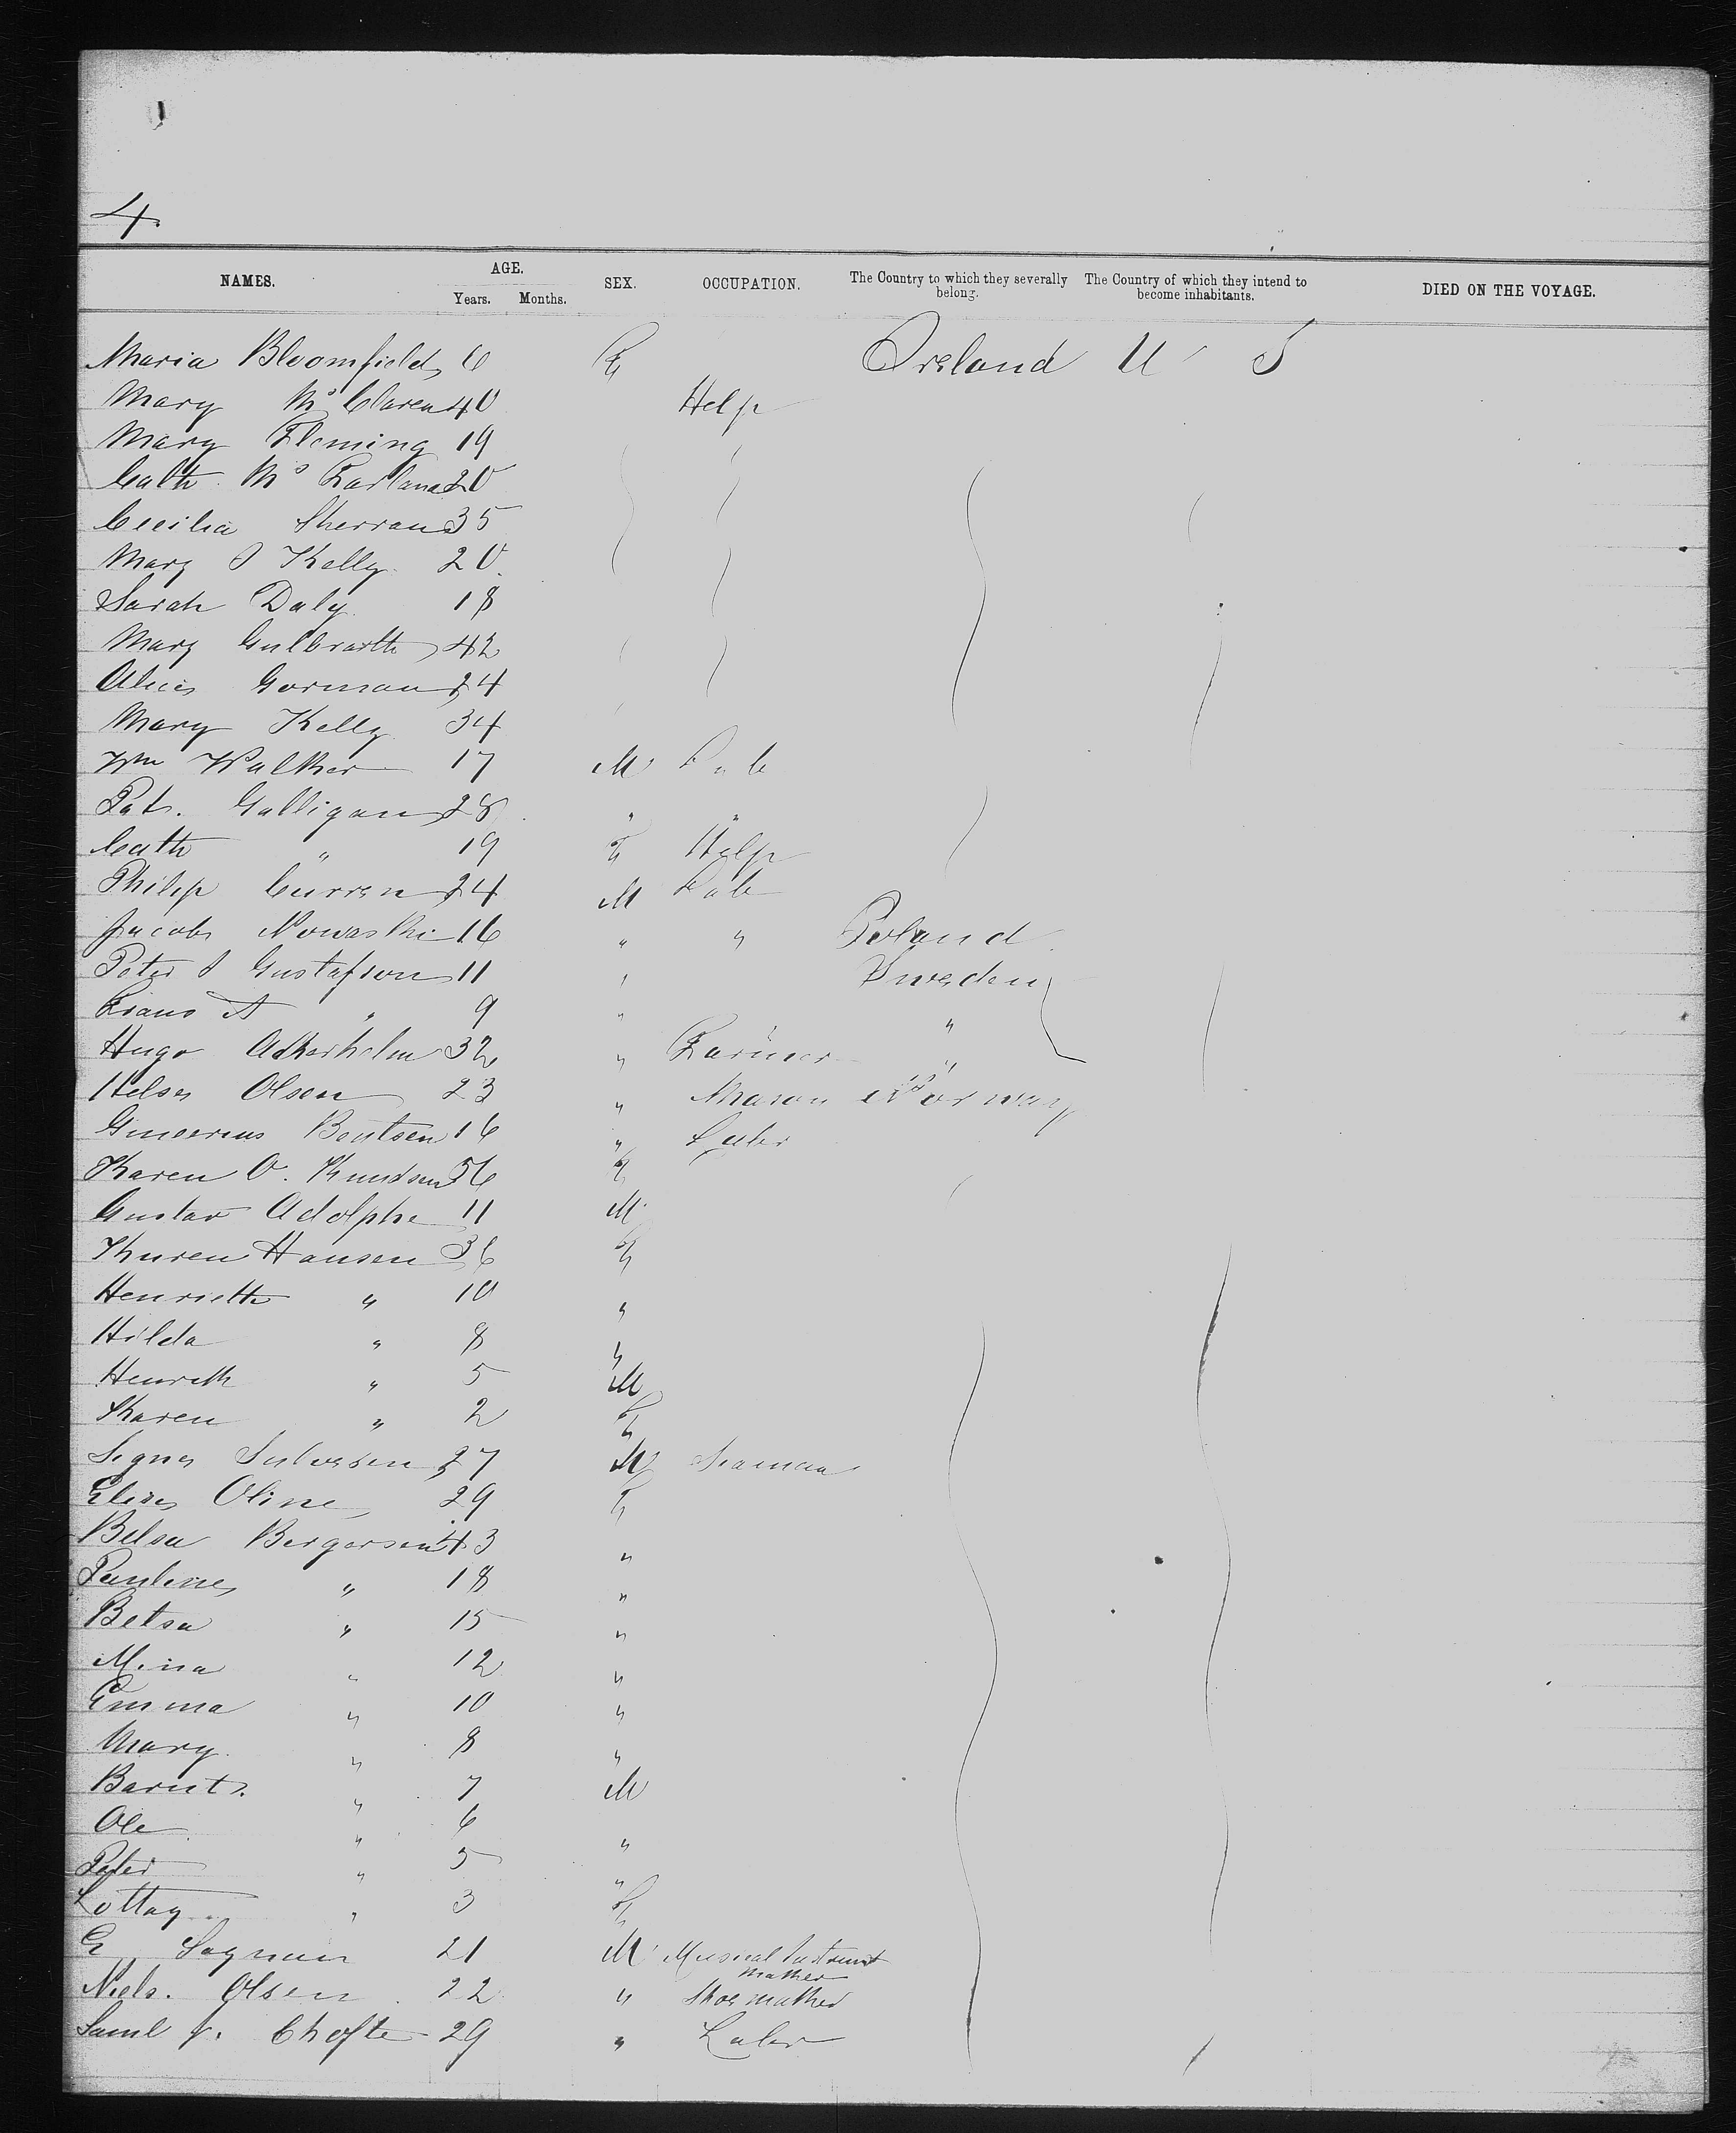 4.
NAMES. AGE. Years. Months. SEX. OCCUPATION. The Country to which they severally belong. The Country of which they intend to become inhabitants. DIED ON THE VOYAGE.
Maria Bloomfield 6 F Ireland U S
Mary McClaren 40 Help
Mary Fleming 19
Cath. Mc Farland 20
Cecilia 35
Mary J Kelly 20
Sarah Daly 18
Mary 42
Alice Gorman 24
Mary Kelly 34
Wm Walker 17 M Lab
Pat. Galligan 28 " "
Cath " 19 F Help
Philip Curren 24 M Lab
Jacob Nowaski 16 " " Poland
Peter J Gustafson 11 " Sweden
A " 9 " "
Hugo 32 " Farmer "
Olsen 23 " Mason Norway
Bentsen 16 " Labr
Karen O. Knudsen 56 F
Gustav Adolphe 11 M
Karen Hansen 36 F
Henriette " 10 "
Hilda " 8 "
" 5 M
Karen " 2 F
27 M Seaman
Oline 29 F
Bergersen 43 "
Pauline " 18 "
Betsa " 15 "
Mina " 12 "
Emma " 10 "
Mary " 8 "
Barnt. " 7 M
Ole " 6 "
Peter " 5 "
Lottay " 3 F
21 M Musical Instrumt
Maker
Niels. Olsen 22 " Shoe maker
Saml J. 29 " Labr